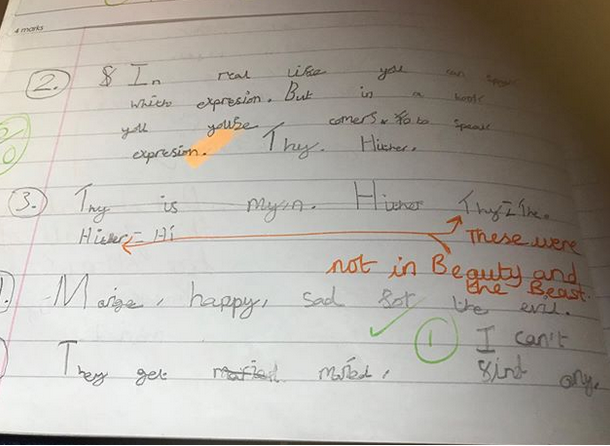 4 marks
2. In real life you can speak
which expresion. But in a book
you youse comers. to speak
expresion. Thy. Hither.
3. Thy is myen. Hither Thy=The.
Hither= Hi
These were
not in Beauty and
the Beast.
Marige, happy, sad the evil.
1 I can't
They get maried, find any.